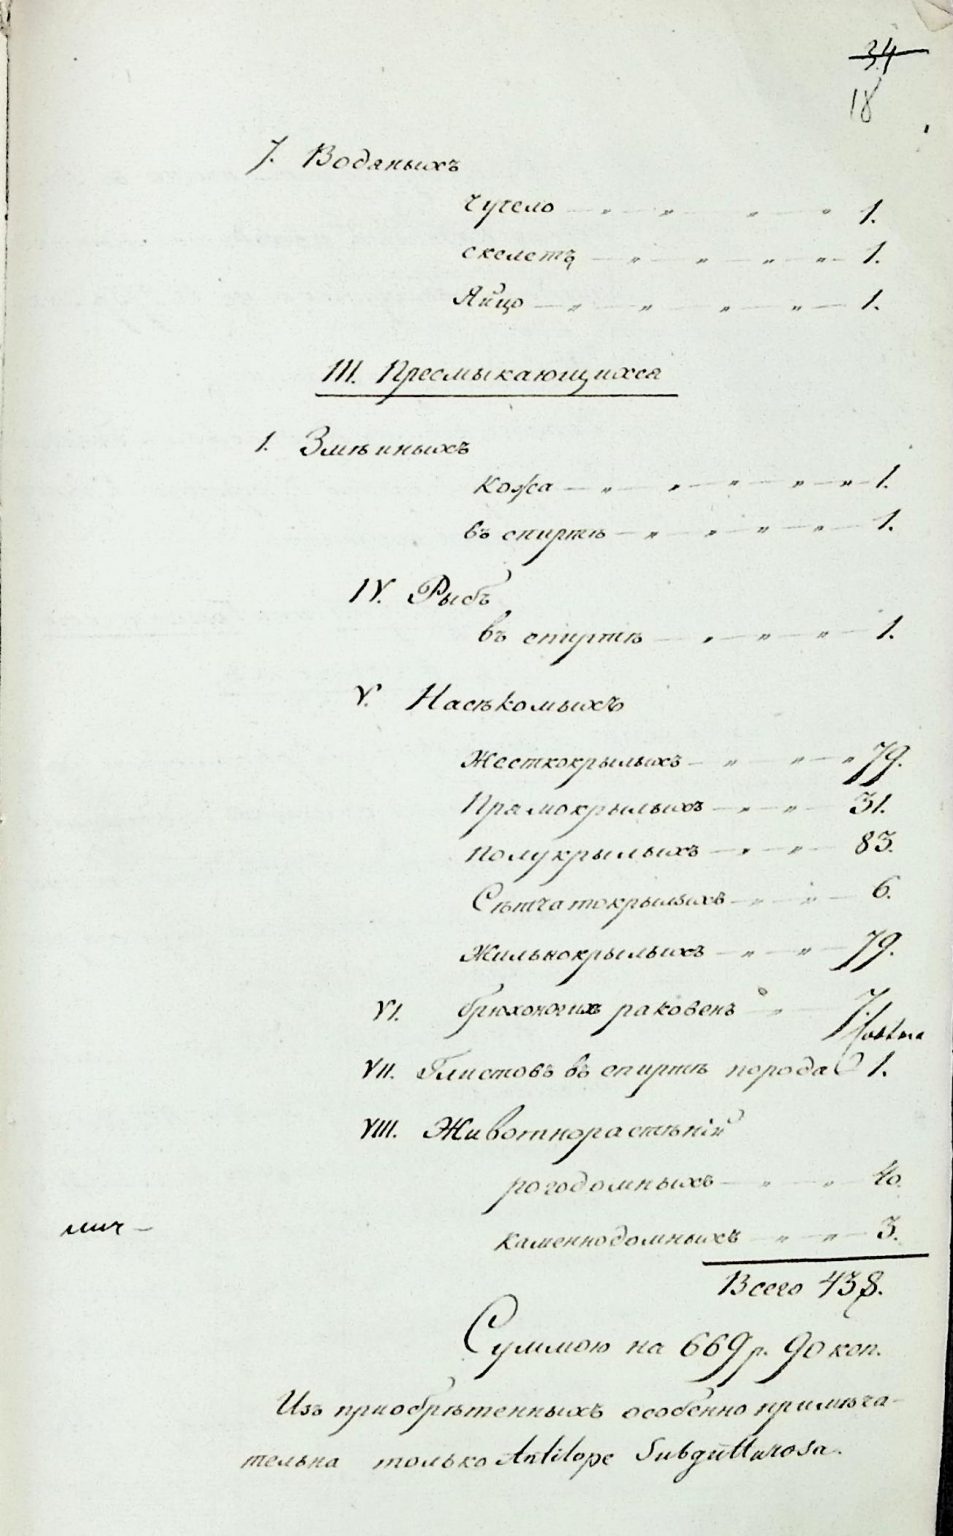 34
18
7. Водяныхъ
чучело — „ — „ — „ — „ 1.
скелетъ — „ — „ — „ — „ — 1.
Яйцо — „ — „ — „ — „ — 1.
III. Пресмыкающихся
1. Змѣиныхъ
кожа — „ — „ — „ — „ — „ — 1.
въ спиртѣ — „ — „ — „ — „ — 1.
IV. Рыбъ
въ спиртѣ — „ — „ — „ — 1.
V. Насѣкомыхъ
Жесткокрылыхъ — „ — „ — „ 79.
Прямокрылыхъ — „ — „ — 31.
Полукрылыхъ — „ — „ — 83.
Сѣтчатокрылыхъ — „ — „ — 6.
Жильнокрылыхъ — „ — „ — 79.
VI. брюхоногихъ раковенъ „ — „ — 7.
VII. Глистовъ въ спиртѣ порода 1.
VIII. Животнорастѣній
рогодомныхъ — „ — „ — 40.
каменнодомныхъ — „ — „ — 3.
Всего 438.
Суммою на 669 р. 90 коп.
Изъ приобрѣтенныхъ особенно примѣча-
тельна только Antilope Subgutturosa.